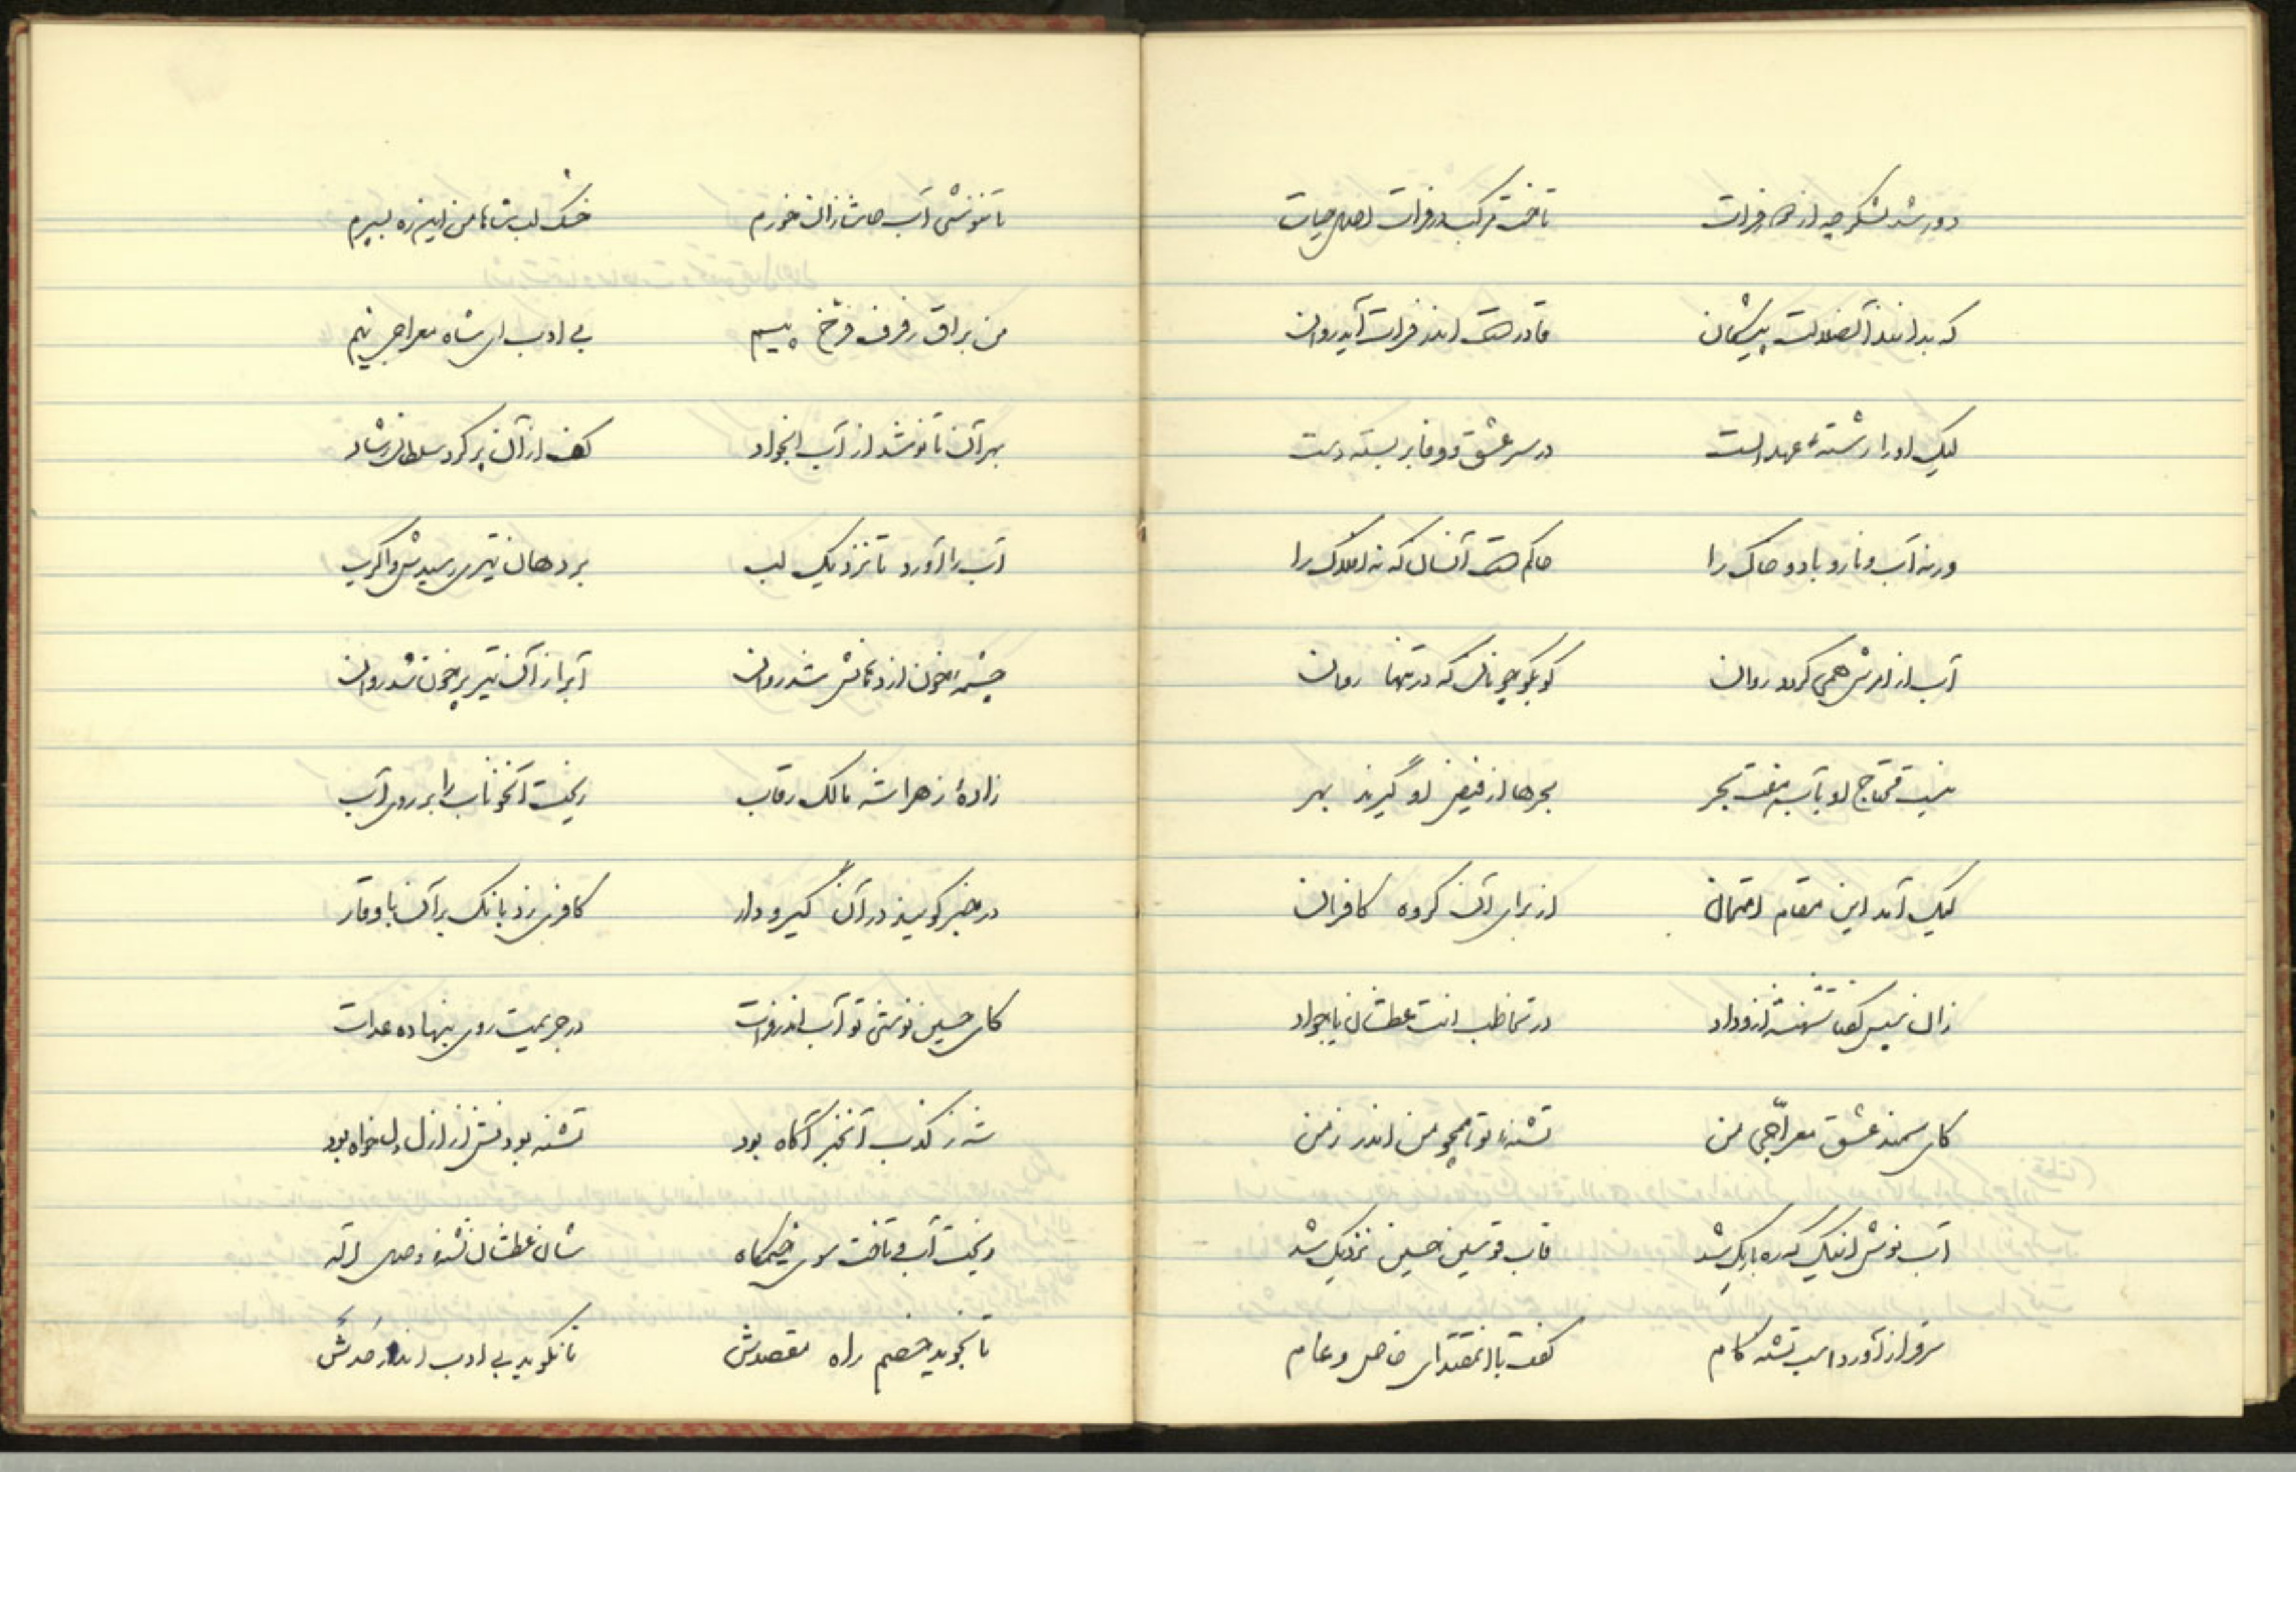 دور شد لشکر چه از فرات تاخت مرکب در فرات اصل حیات
که بدانند آنضلالت پیشگان قادر هست اندر فرات آید روان
لیک او را رشتهٔ عهد الست در سر عشق و وفا بر بسته دست
ورنه آب و نار و باد و خاک را حاکم هست آنسان که نه افلاک را
آب از امرش همی گردد روان گو بگو چونان که در تنها روان
نیست محتاج او بآب هفت بحر بحرها از فیض او گیرند بهر
لیک آمد این مقام امتحان از برای آن گروه کافران
زان سپس گفتا شهنشه از وداد در تخاطب انت عطشان یا جواد
کای سمند عشق معراجی من تشنهٔ تو همچو من اندر زمن
آب نوش اینک که ره باریک شد قاب قوسین حسین نزدیک شد
سر فراز آورد اسب تشنه کام گفت با آنمقتدای خاص و عام
تا ننوشی آب حاشا زان خورم خشک لب شاها من این ره بسپرم
من براق رفرف فرخ پیم بی ادب ای شاه معراجی نیم
بهر آن تا نوشد از آب آنجواد کف از آن پر کرد سلطان رشاد
آب را آورد تا نزدیک لب بر دهان تیری رسیدش واکرب
چشمهٔ خون از دهانش شد روان آبرا از آن تیر پر خون شد روان
زادهٔ زهرا شه مالک رقاب ریخت آنخوناب را بر روی آب
در خبر گویند در آن گیر و دار کافری زد بانک بر آن با وقار
کای حسین نوشی تو آب اندر فرات در حریمت روی بنهاده عدات
شه ز کذب آنخبر آگاه بود تشنه بودنش از ازل دلخواه بود
ریخت آب و تاخت سوی خیمگاه شاه عطشان تشنهٔ وصل اله
تا نجوید خصم راه مقصدش تا نگوید بی ادب اندر صدش